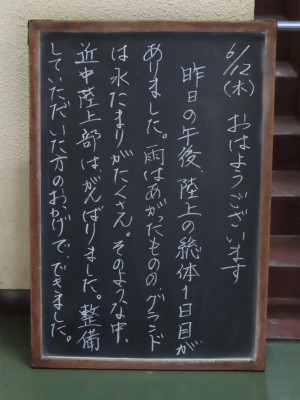 6/12(木) おはようございます
昨日の午後、陸上の総体1日目が、
ありました。雨はあがったものの、グランド
は水たまりがたくさん。そのような中、
近中陸上部は、がんばりました。整備
していただいた方のおかげで、できました。